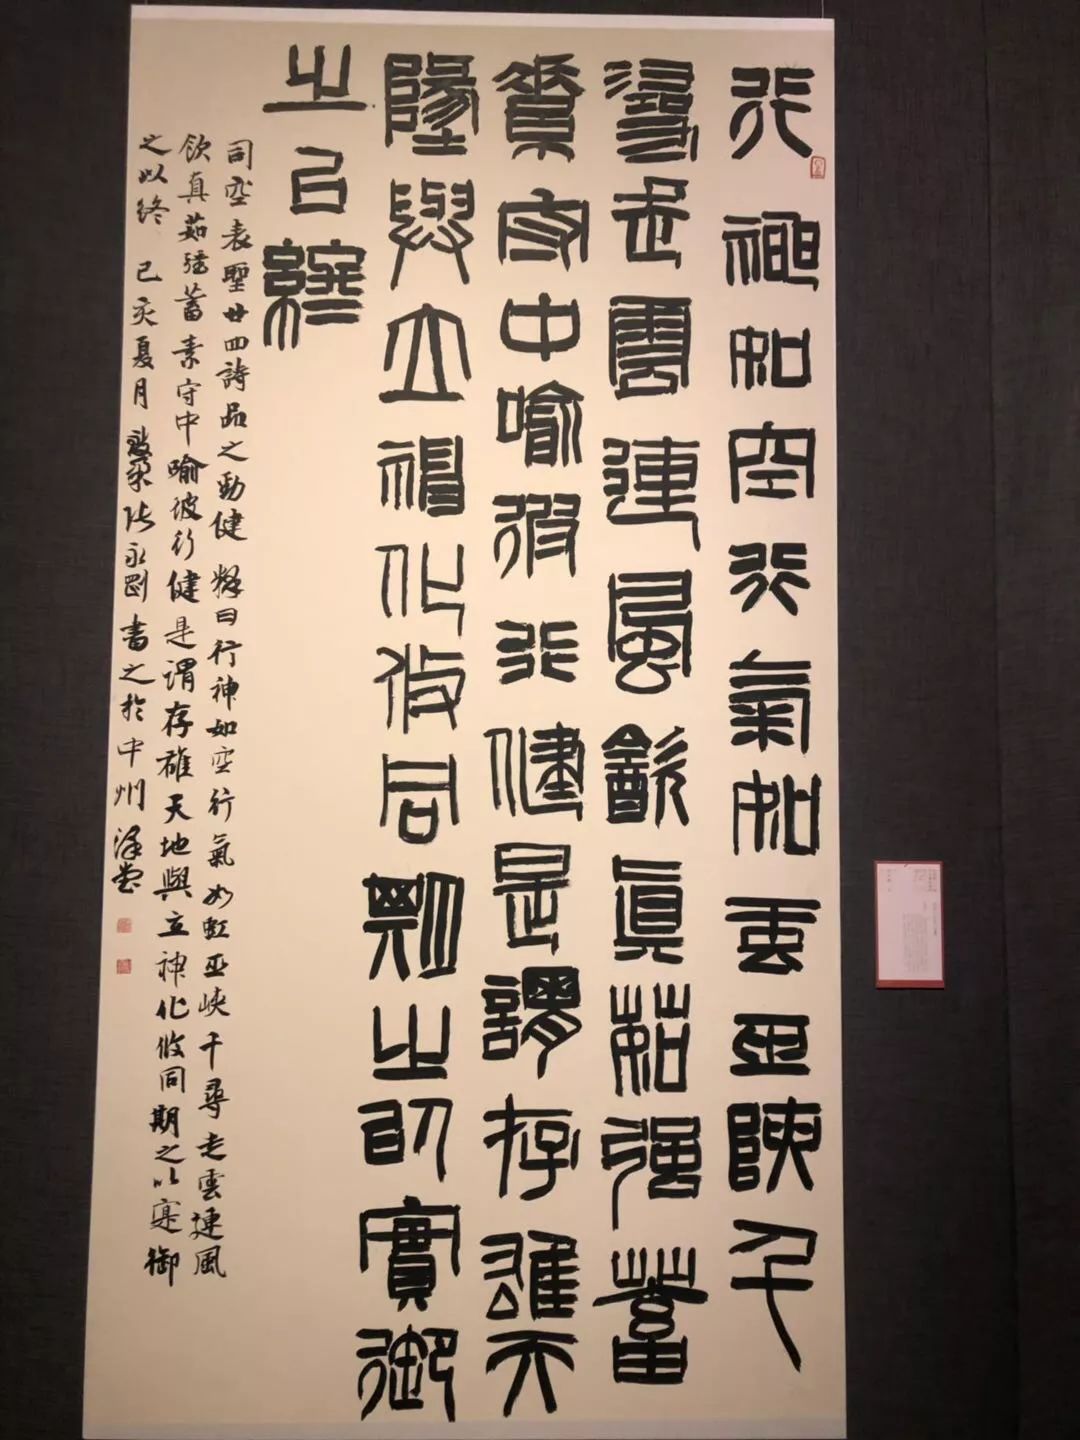 行神如空行氣如虹巫峽千
尋走雲連風飲真茹強蓄
素守中喻彼行健是謂存雄天
地與立神化攸同期之以實御
之以終
司空表聖廿四詩品之勁健 釋曰行神如空行氣如虹巫峽千尋走雲連風
飲真茹強蓄素守中喻彼行健是謂存雄天地與立神化攸同期之以實御
之以終 己亥夏月 張永剛書之於中州